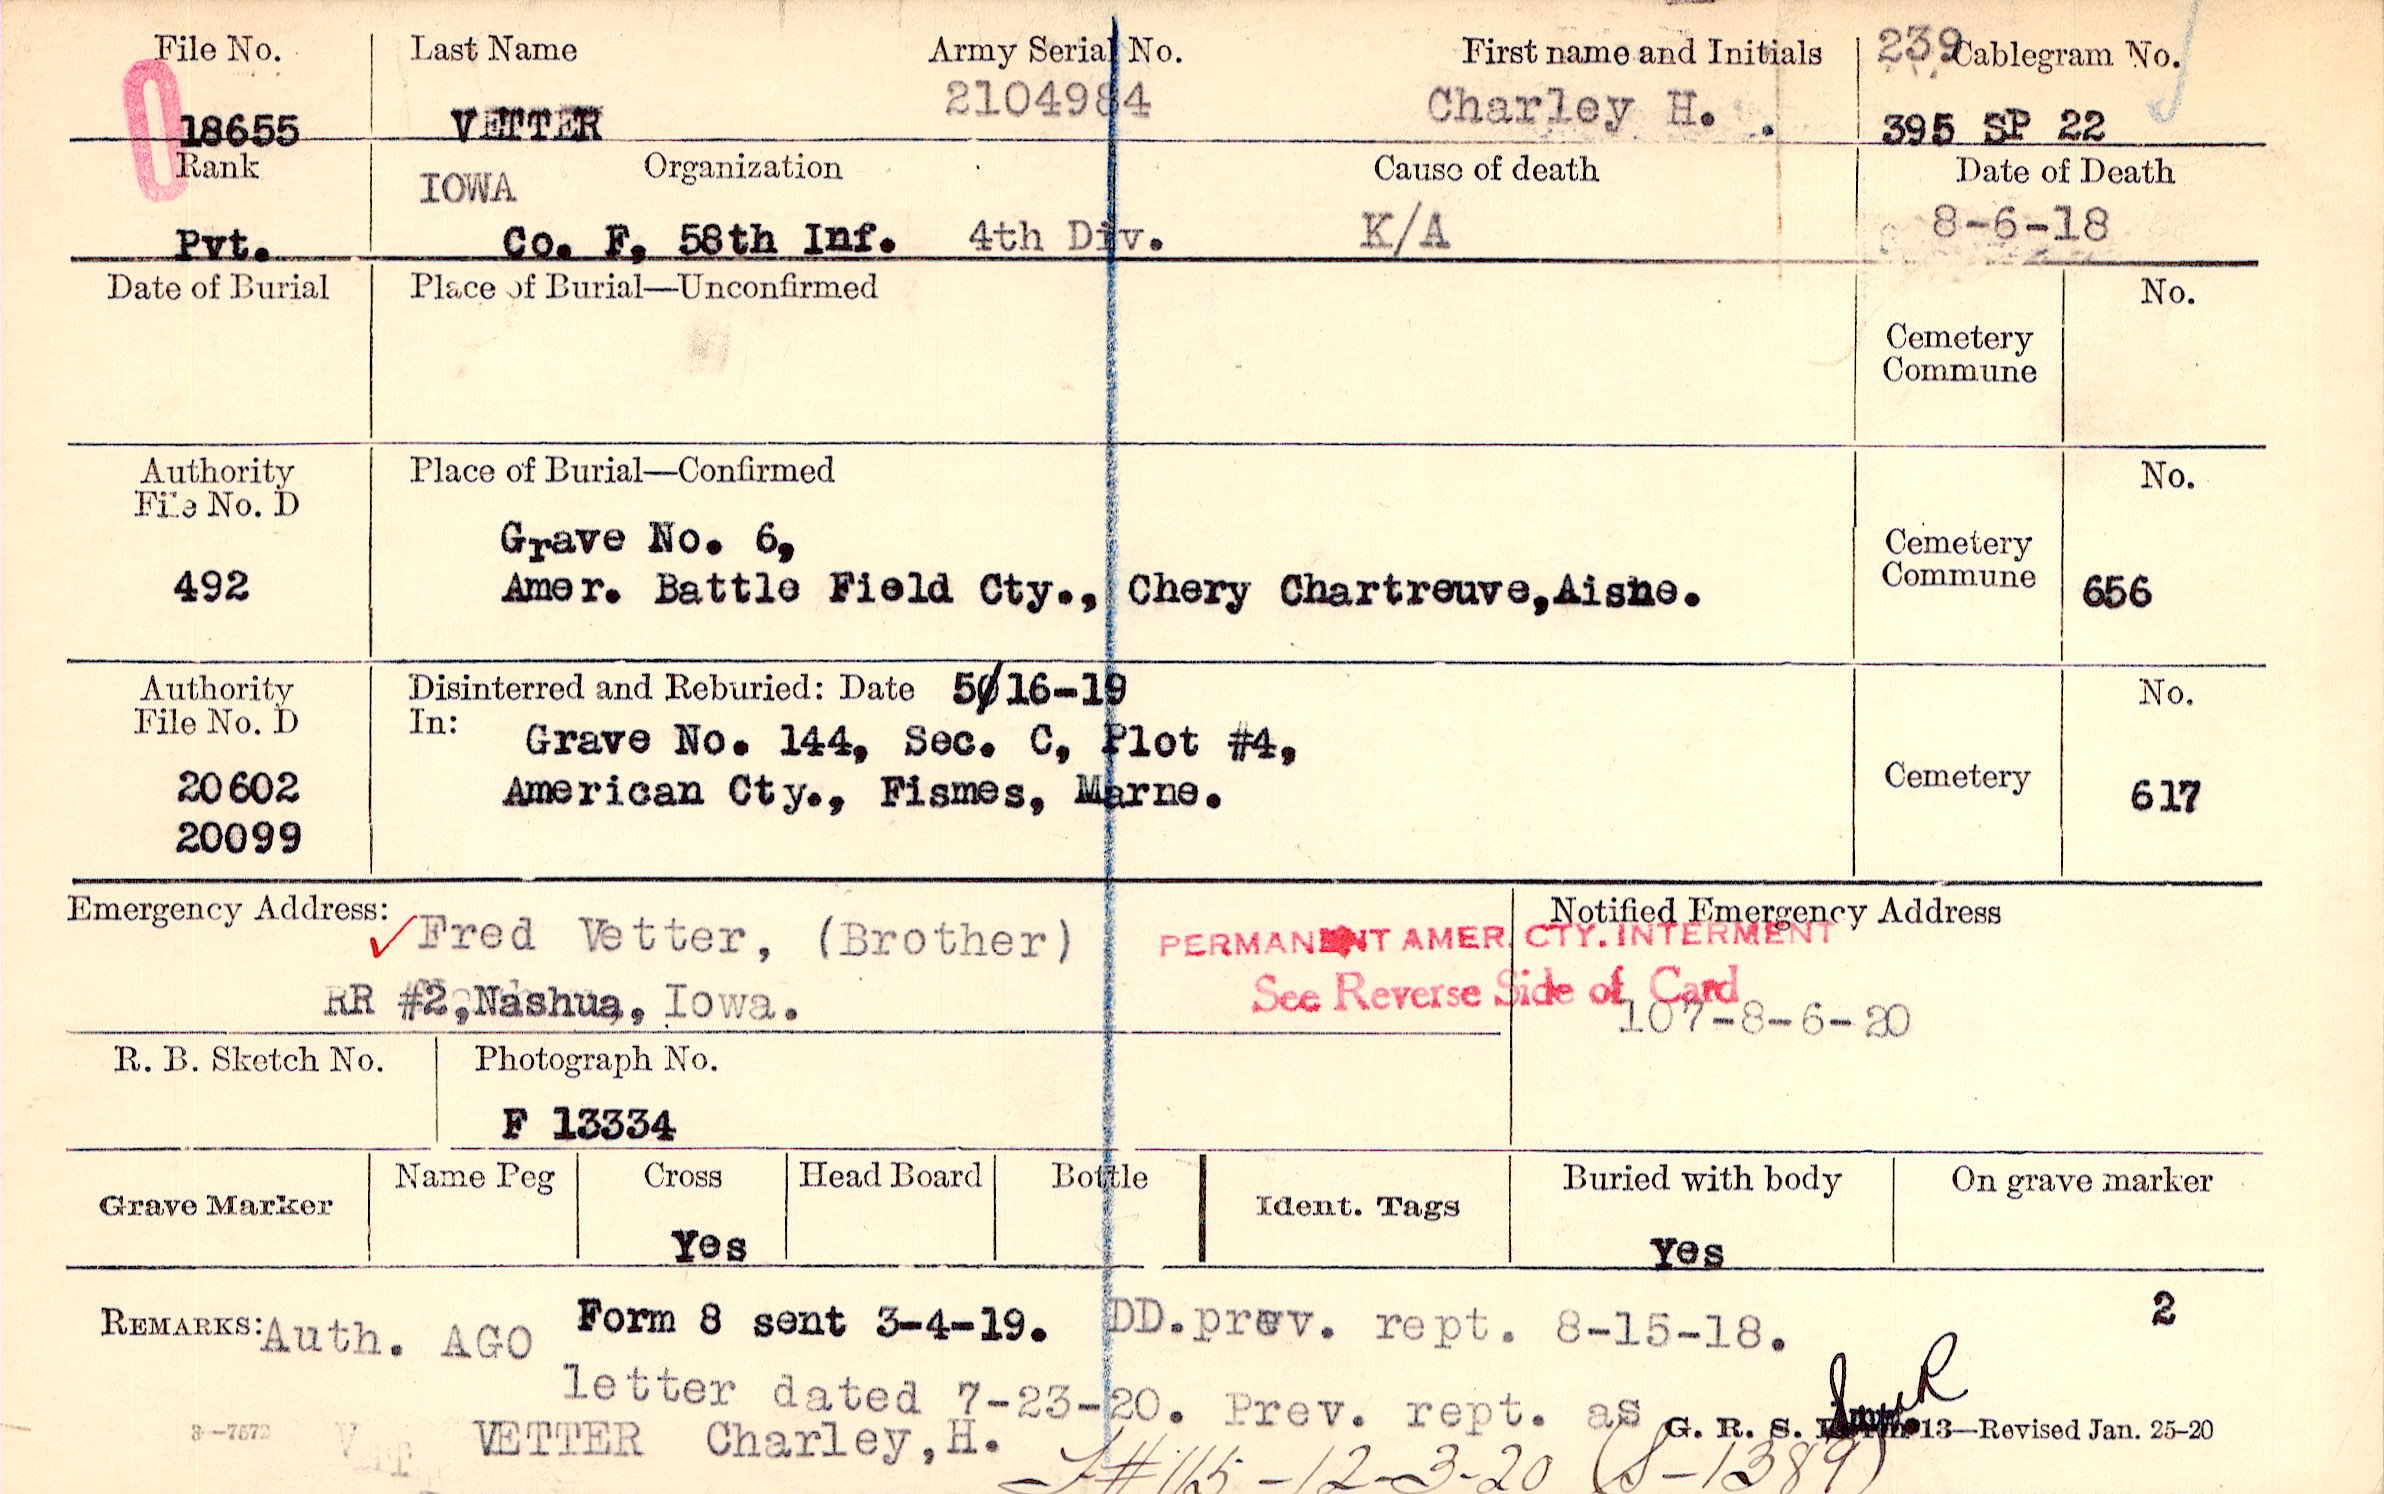 File No. Last Name Army Serial No. First name and Initials 239 Cablegram No.
18655 VETTER 2104984 Charley H. . 395 SP 22
Rank IOWA Organization Cause of death Date of Death
Pvt. Co. F, 58th Inf. 4th Div. K/A 8-6-18
Date of Burial Place of Burial—Unconfirmed No.
Cemetery
Commune
Authority Place of Burial—Confirmed No.
File No. D
Grave No. 6,
492 Amer. Battle Field Cty., Chery Chartreuve,Aisne. Cemetery Commune 656
Authority Disinterred and Reburied: Date 5/16-19 No.
File No. D In: Grave No. 144, Sec. C, Plot #4,
20602 American Cty., Fismes, Marne. Cemetery 617
20099
Emergency Address: Notified Emergency Address
Fred Vetter, (Brother) PERMANENT AMER. CTY. INTERMENT
RR #2,Nashua, Iowa. See Reverse Side of Card
107-8-6-20
R. B. Sketch No. Photograph No.
F 13334
Grave Marker Name Peg Cross Head Board Bottle Ident. Tags Buried with body On grave marker
Yes Yes
REMARKS: Auth. AGO Form 8 sent 3-4-19. DD.prev. rept. 8-15-18. 2
letter dated 7-23-20. Prev. rept. as
3—7672 VETTER Charley,H. G. R. S. 13—Revised Jan. 25-20
#115-12-3-20 (S-1389)